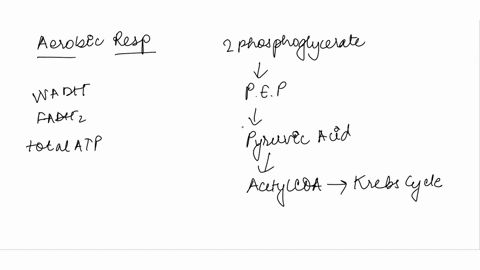 Aerobic Resp
NADH
FADH2
total ATP
2 phosphoglycerate
↓
P.E.P
↓
Pyruvic Acid
↓
Acetyl COA → Krebs Cycle